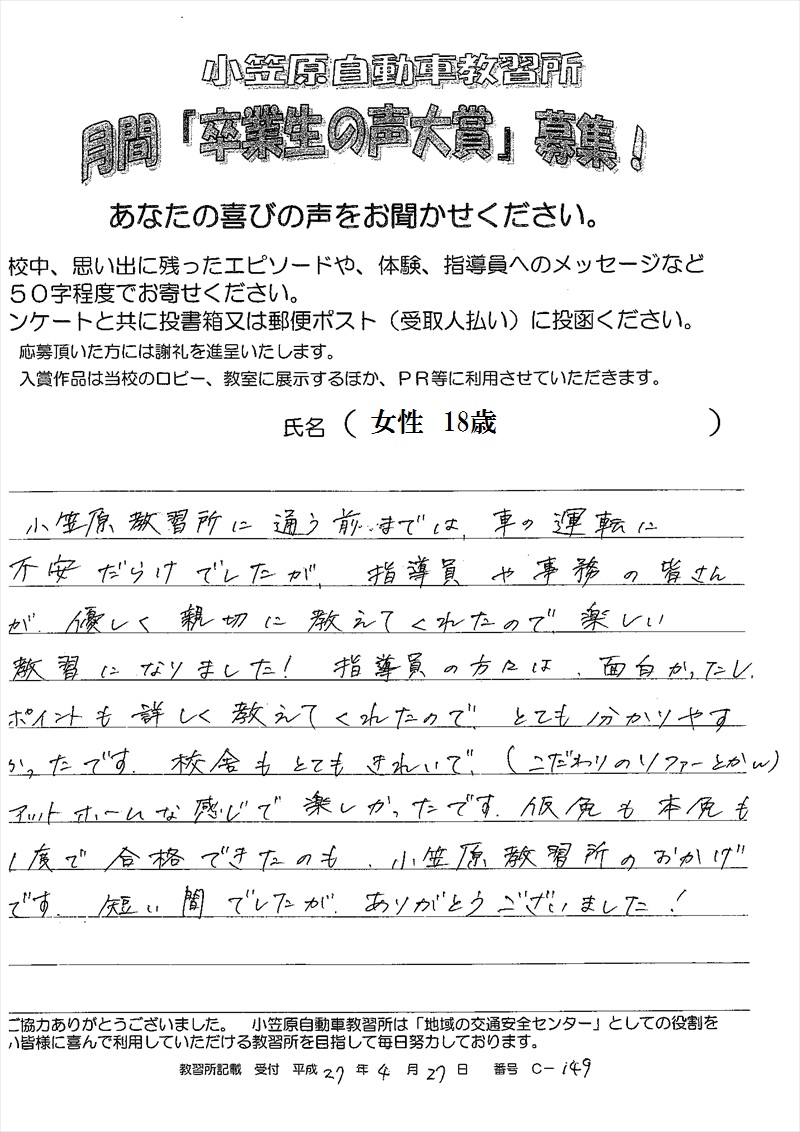 小笠原自動車教習所
月間「卒業生の声大賞」募集!
あなたの喜びの声をお聞かせください。
校中、思い出に残ったエピソードや、体験、指導員へのメッセージなど
５０字程度でお寄せください。
ンケートと共に投書箱又は郵便ポスト（受取人払い）に投函ください。
応募頂いた方には謝礼を進呈いたします。
入賞作品は当校のロビー、教室に展示するほか、ＰＲ等に利用させていただきます。
氏名（ 女性 18歳 ）
小笠原教習所に通う前までは、車の運転に
不安だらけでしたが、指導員や事務の皆さん
が、優しく親切に教えてくれたので楽しい
教習になりました! 指導員の方々は、面白かったし、
ポイントも詳しく教えてくれたので、とても分かりやす
かったです。校舎もとてもきれいで、(こだわりのソファーとかw)
アットホームな感じで楽しかったです。仮免も本免も
1度で合格できたのも、小笠原教習所のおかげ
です。短い間でしたが、ありがとうございました!
ご協力ありがとうございました。 小笠原自動車教習所は「地域の交通安全センター」としての役割を
い皆様に喜んで利用していただける教習所を目指して毎日努力しております。
教習所記載 受付 平成 27 年 4 月 27 日 番号 C- 149